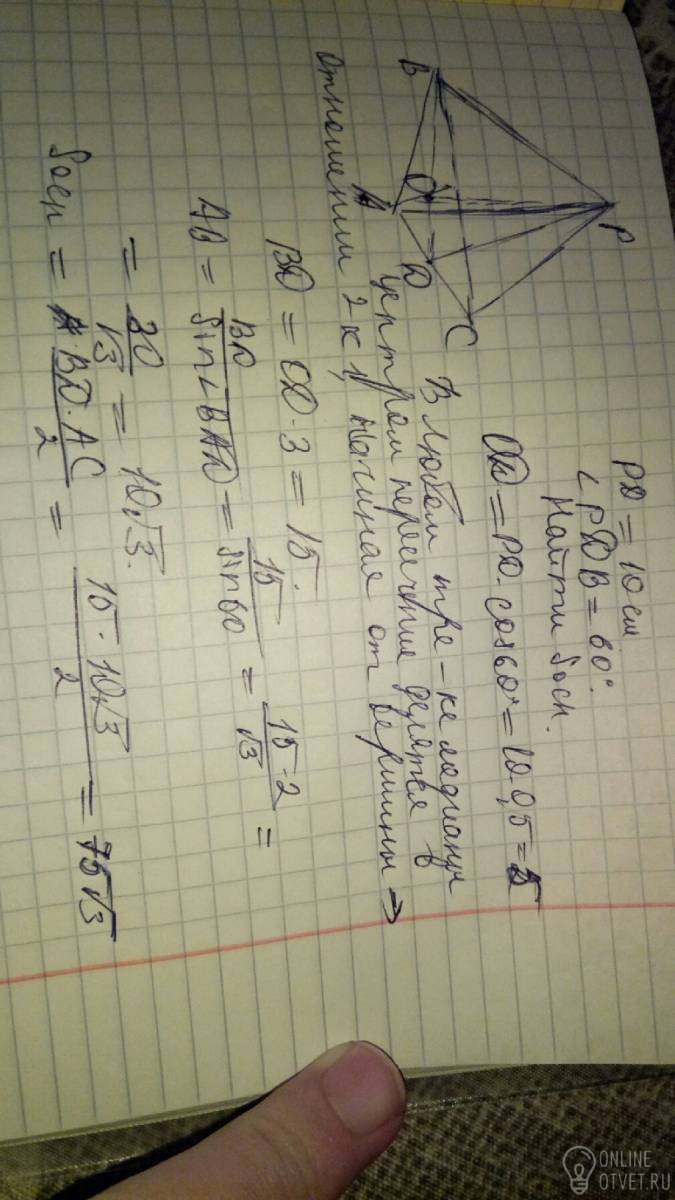 P
B
O
A
D
C
PD = 10 см
∠PDB = 60°.
Найти Sосн.
OD = PD · cos60° = 10 · 0,5 = 5
В любом тре-ке медианы
центром пересечения делятся в
отношении 2 к 1, начиная от вершины ⇒
BD = OD · 3 = 15.
AB = BD / sin∠BAD = 15 / sin60 = 15·2 / √3 =
= 30 / √3 = 10√3.
Sосн = BD·AC / 2 = 15·10√3 / 2 = 75√3
ONLINE
OTVET.RU